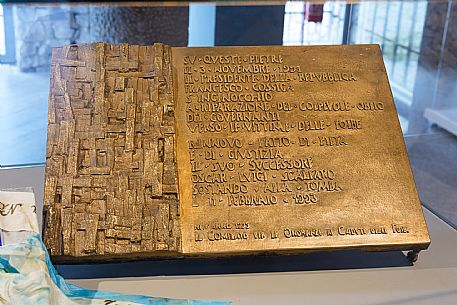 SU · QUESTE · PIETRE
IL · 3 · NOVEMBRE · 1991
IL · PRESIDENTE · DELLA · REPUBBLICA
FRANCESCO · COSSIGA
S'INGINOCCHIÒ
A · RIPARAZIONE · DEL · COLPEVOLE · OBLIO
DEI · GOVERNANTI
VERSO · LE · VITTIME · DELLE · FOIBE
RINNOVÒ · L'ATTO · DI · PIETÀ
E · DI · GIUSTIZIA
IL · SUO · SUCCESSORE
OSCAR · LUIGI · SCALFARO
SOSTANDO · ALLA · TOMBA
L'11 · FEBBRAIO · 1993
IL COMITATO PER LE ONORANZE AI CADUTI DELLE FOIBE
N